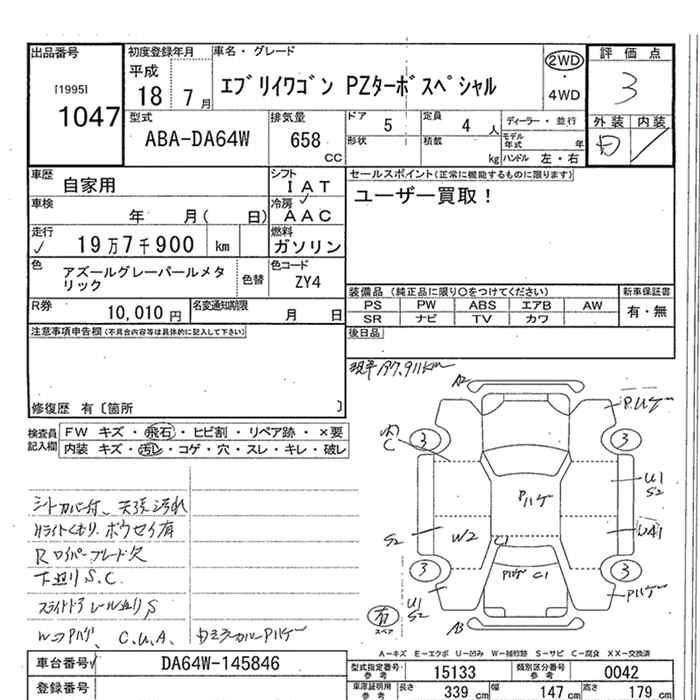 出品番号
[1995]
1047
初度登録年月
平成
18 7 月
車名・グレード
エブリイワゴン PZターボスペシャル
2WD
・
4WD
評価点
3
外装 内装
D
型式
ABA-DA64W
排気量
658
CC
ドア
5
定員
4 人
形状
積載
kg
ディーラー・並行
モデル年式 年
ハンドル 左・右
車歴
自家用
シフト
IAT
車検
年 月( 日)
冷房
AAC
走行
19万7千900 km
燃料
ガソリン
色
アズールグレーパールメタ
リック
色替
色コード
ZY4
R券
10,010 円
名変通知期限
月 日
セールスポイント(正常に機能するものに限ります)
ユーザー買取!
装備品(純正品に限り○をつけてください)
新車保証書
PS PW ABS エアB AW
SR ナビ TV カワ
有・無
後日品
注意事項申告欄(不具合内容等は具体的に記入して下さい)
修復歴 有〔箇所 〕
検査員
記入欄
FW キズ・飛石・ヒビ割・リペア跡・×要
内装 キズ・汚レ・コゲ・穴・スレ・キレ・破レ
現車 197,911km
A2
P.Uゲー
3
3
C
U1
S2
Pハゲ
S2
W2
C1
U41
Pハゲ C1
3
3
U1
S2
Pハゲー
右
スペア
A3
シートカバー付、天張汚れ
Rライトくもり、ボウセイ有
Rワイパーブレード欠
下廻りS.C.
スライドドアレール廻りS
W⇒Pハゲ、C.U.A.
A-キズ E-エクボ U-凹み W-補修跡 S-サビ C-腐食 XX-交換済
車台番号
DA64W-145846
登録番号
型式指定番号
参考
15133
類別区分番号
参考
0042
車庫証明用
参考
長さ
339 cm
幅
147 cm
高さ
179 cm